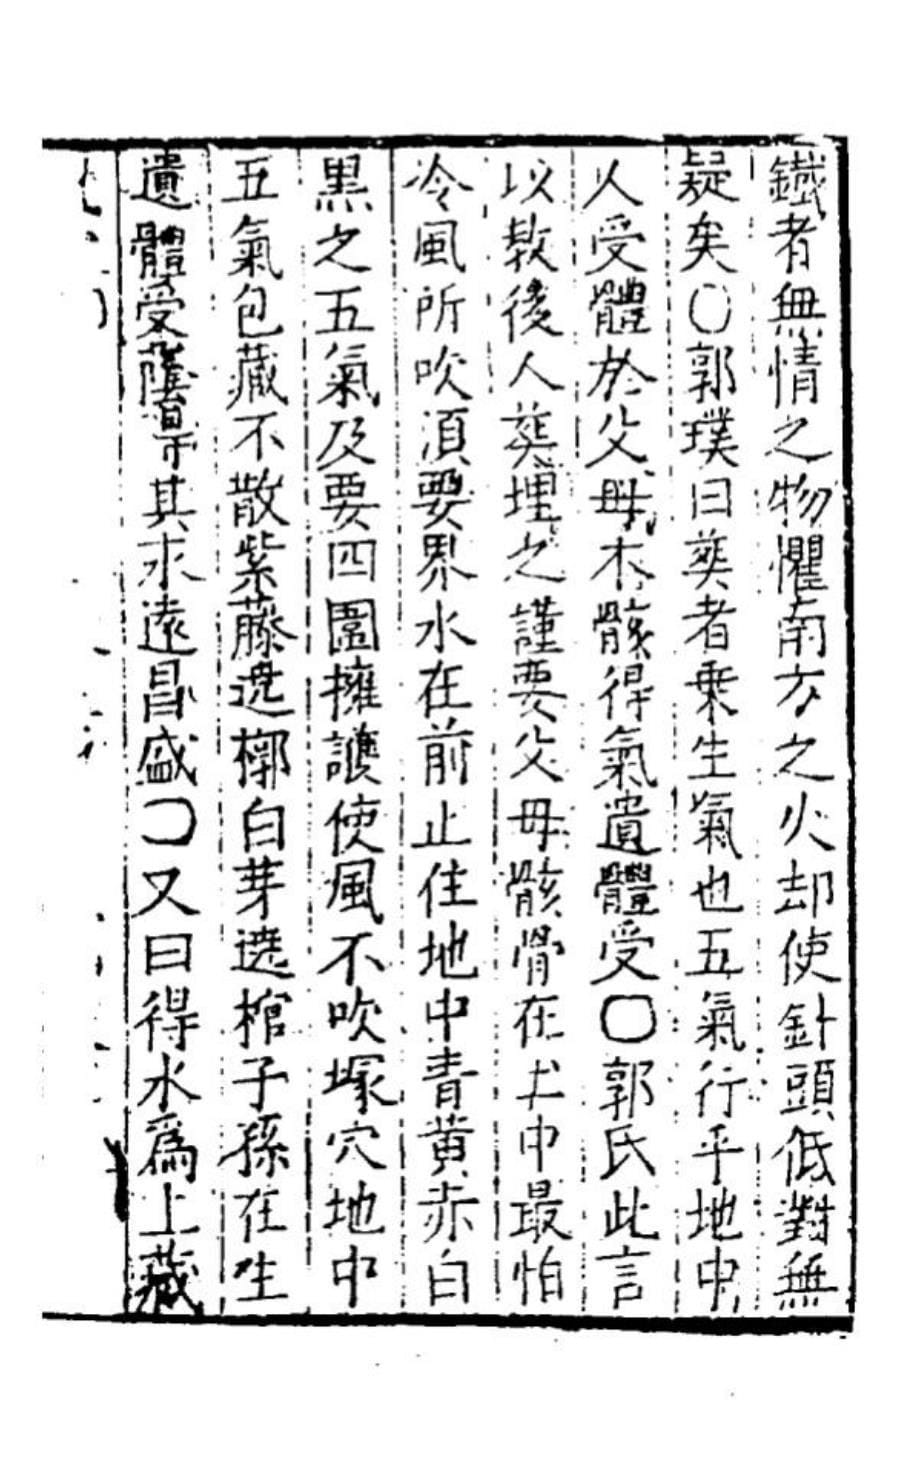 鐵者無情之物懼南方之火却使針頭低對無
疑矣〇郭璞曰葬者乗生氣也五氣行乎地中
人受體於父母本骸得氣遺體受〇郭氏此言
以教後人葬埋之謹要父母骸骨在土中最怕
冷風所吹湏要界水在前止住地中青黄赤白
黒之五氣及要四圍擁護使風不吹塚穴地中
五氣包藏不散紫藤遶槨白芽遶棺子孫在生
遺體受蔭其永遠昌盛〇又曰得水爲上藏